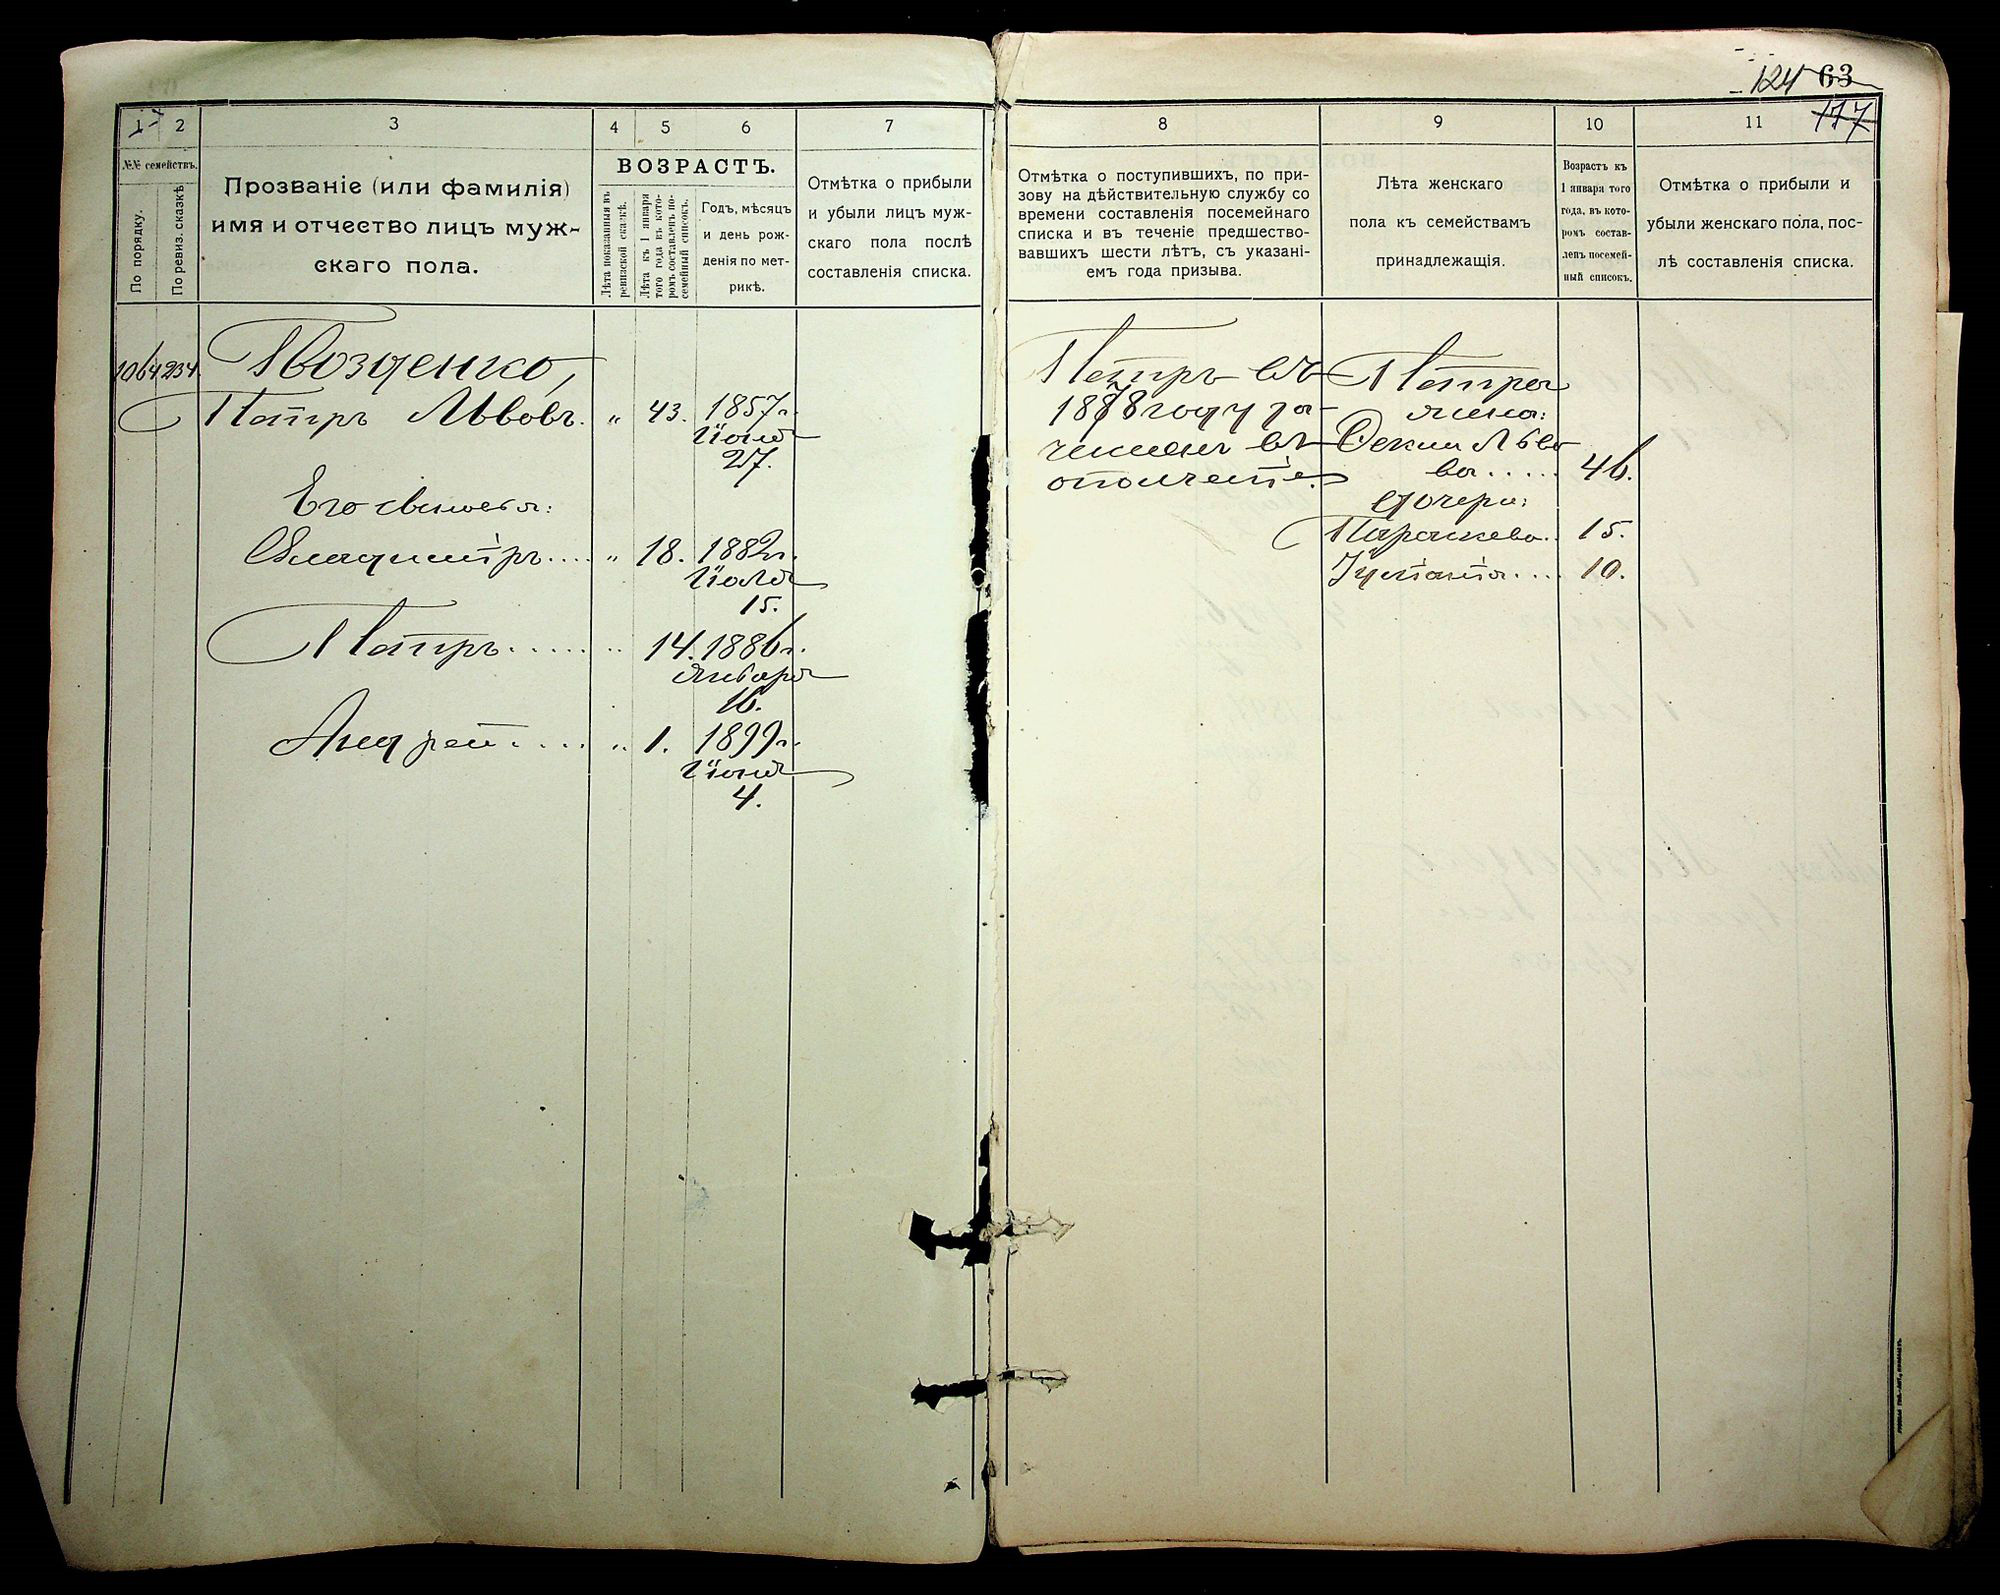 124 63
177
1 2 3 4 5 6 7
№№ семействъ.
По порядку.
По ревиз. сказкѣ
Прозваніе (или фамилія)
имя и отчество лицъ муж-
скаго пола.
ВОЗРАСТЪ.
Лѣта показанныя въ
ревизской сказкѣ.
Лѣта къ 1 января
того года въ кото-
ромъ составленъ по-
семейный списокъ.
Годъ, мѣсяцъ
и день рож-
денія по мет-
рикѣ.
Отмѣтка о прибыли
и убыли лицъ муж-
скаго пола послѣ
составленія списка.
1064 234 Гвозденко,
Петръ Львовъ. " 43. 1857 г.
Іюня
27.
Его сыновья:
Владиміръ.... " 18. 1882 г.
Іюля
15.
Петръ...... " 14. 1886 г.
Января
16.
Андрей..... " 1. 1899 г.
Іюня
4.
8 9 10 11
Отмѣтка о поступившихъ, по при-
зову на дѣйствительную службу со
времени составленія посемейнаго
списка и въ теченіе предшество-
вавшихъ шести лѣтъ, съ указані-
емъ года призыва.
Лѣта женскаго
пола къ семействамъ
принадлежащія.
Возрастъ къ
1 января того
года, въ кото-
ромъ состав-
ленъ посемей-
ный списокъ.
Отмѣтка о прибыли и
убыли женскаго пола, пос-
лѣ составленія списка.
Петръ въ
1878 году за-
численъ въ
ополченіе.
Петра
жена:
Фекла Льво
ва..... 46.
дочери:
Параскева.. 15.
Іуліанія.... 10.